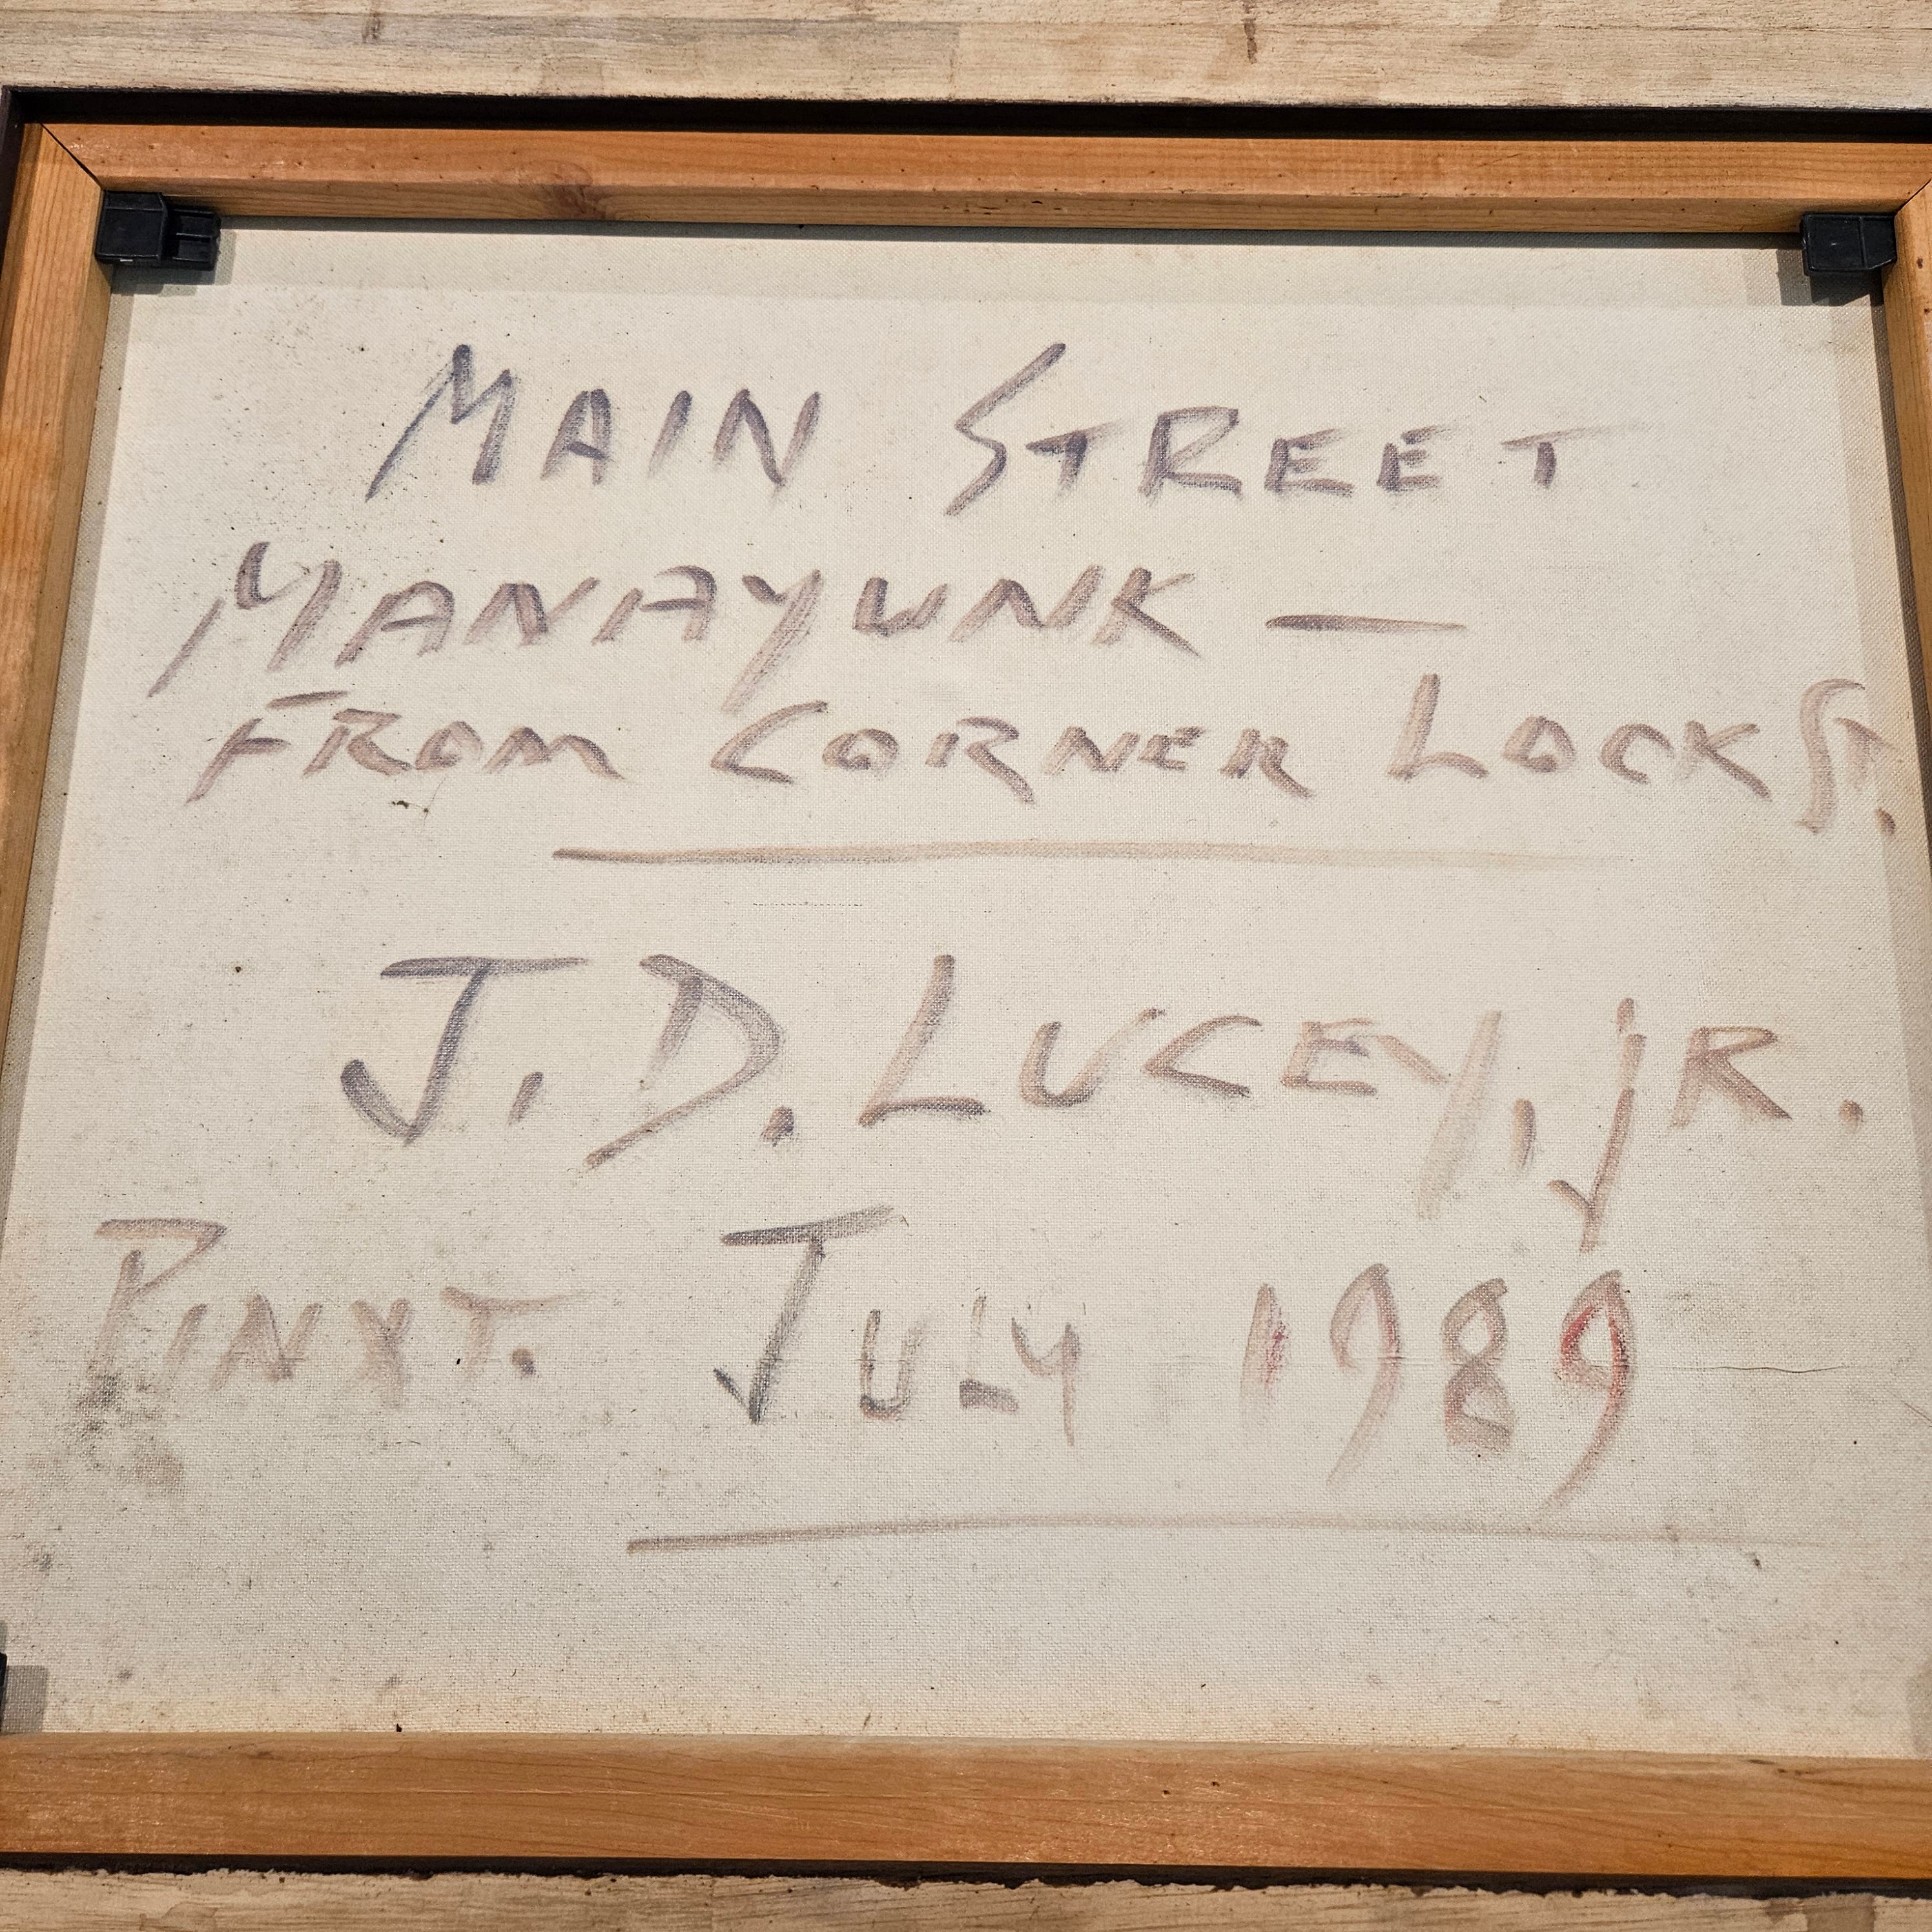 MAIN STREET
MANAYUNK —
FROM CORNER LOCK ST.
J. D. LUCEY, jR.
PINXT. JULY 1989